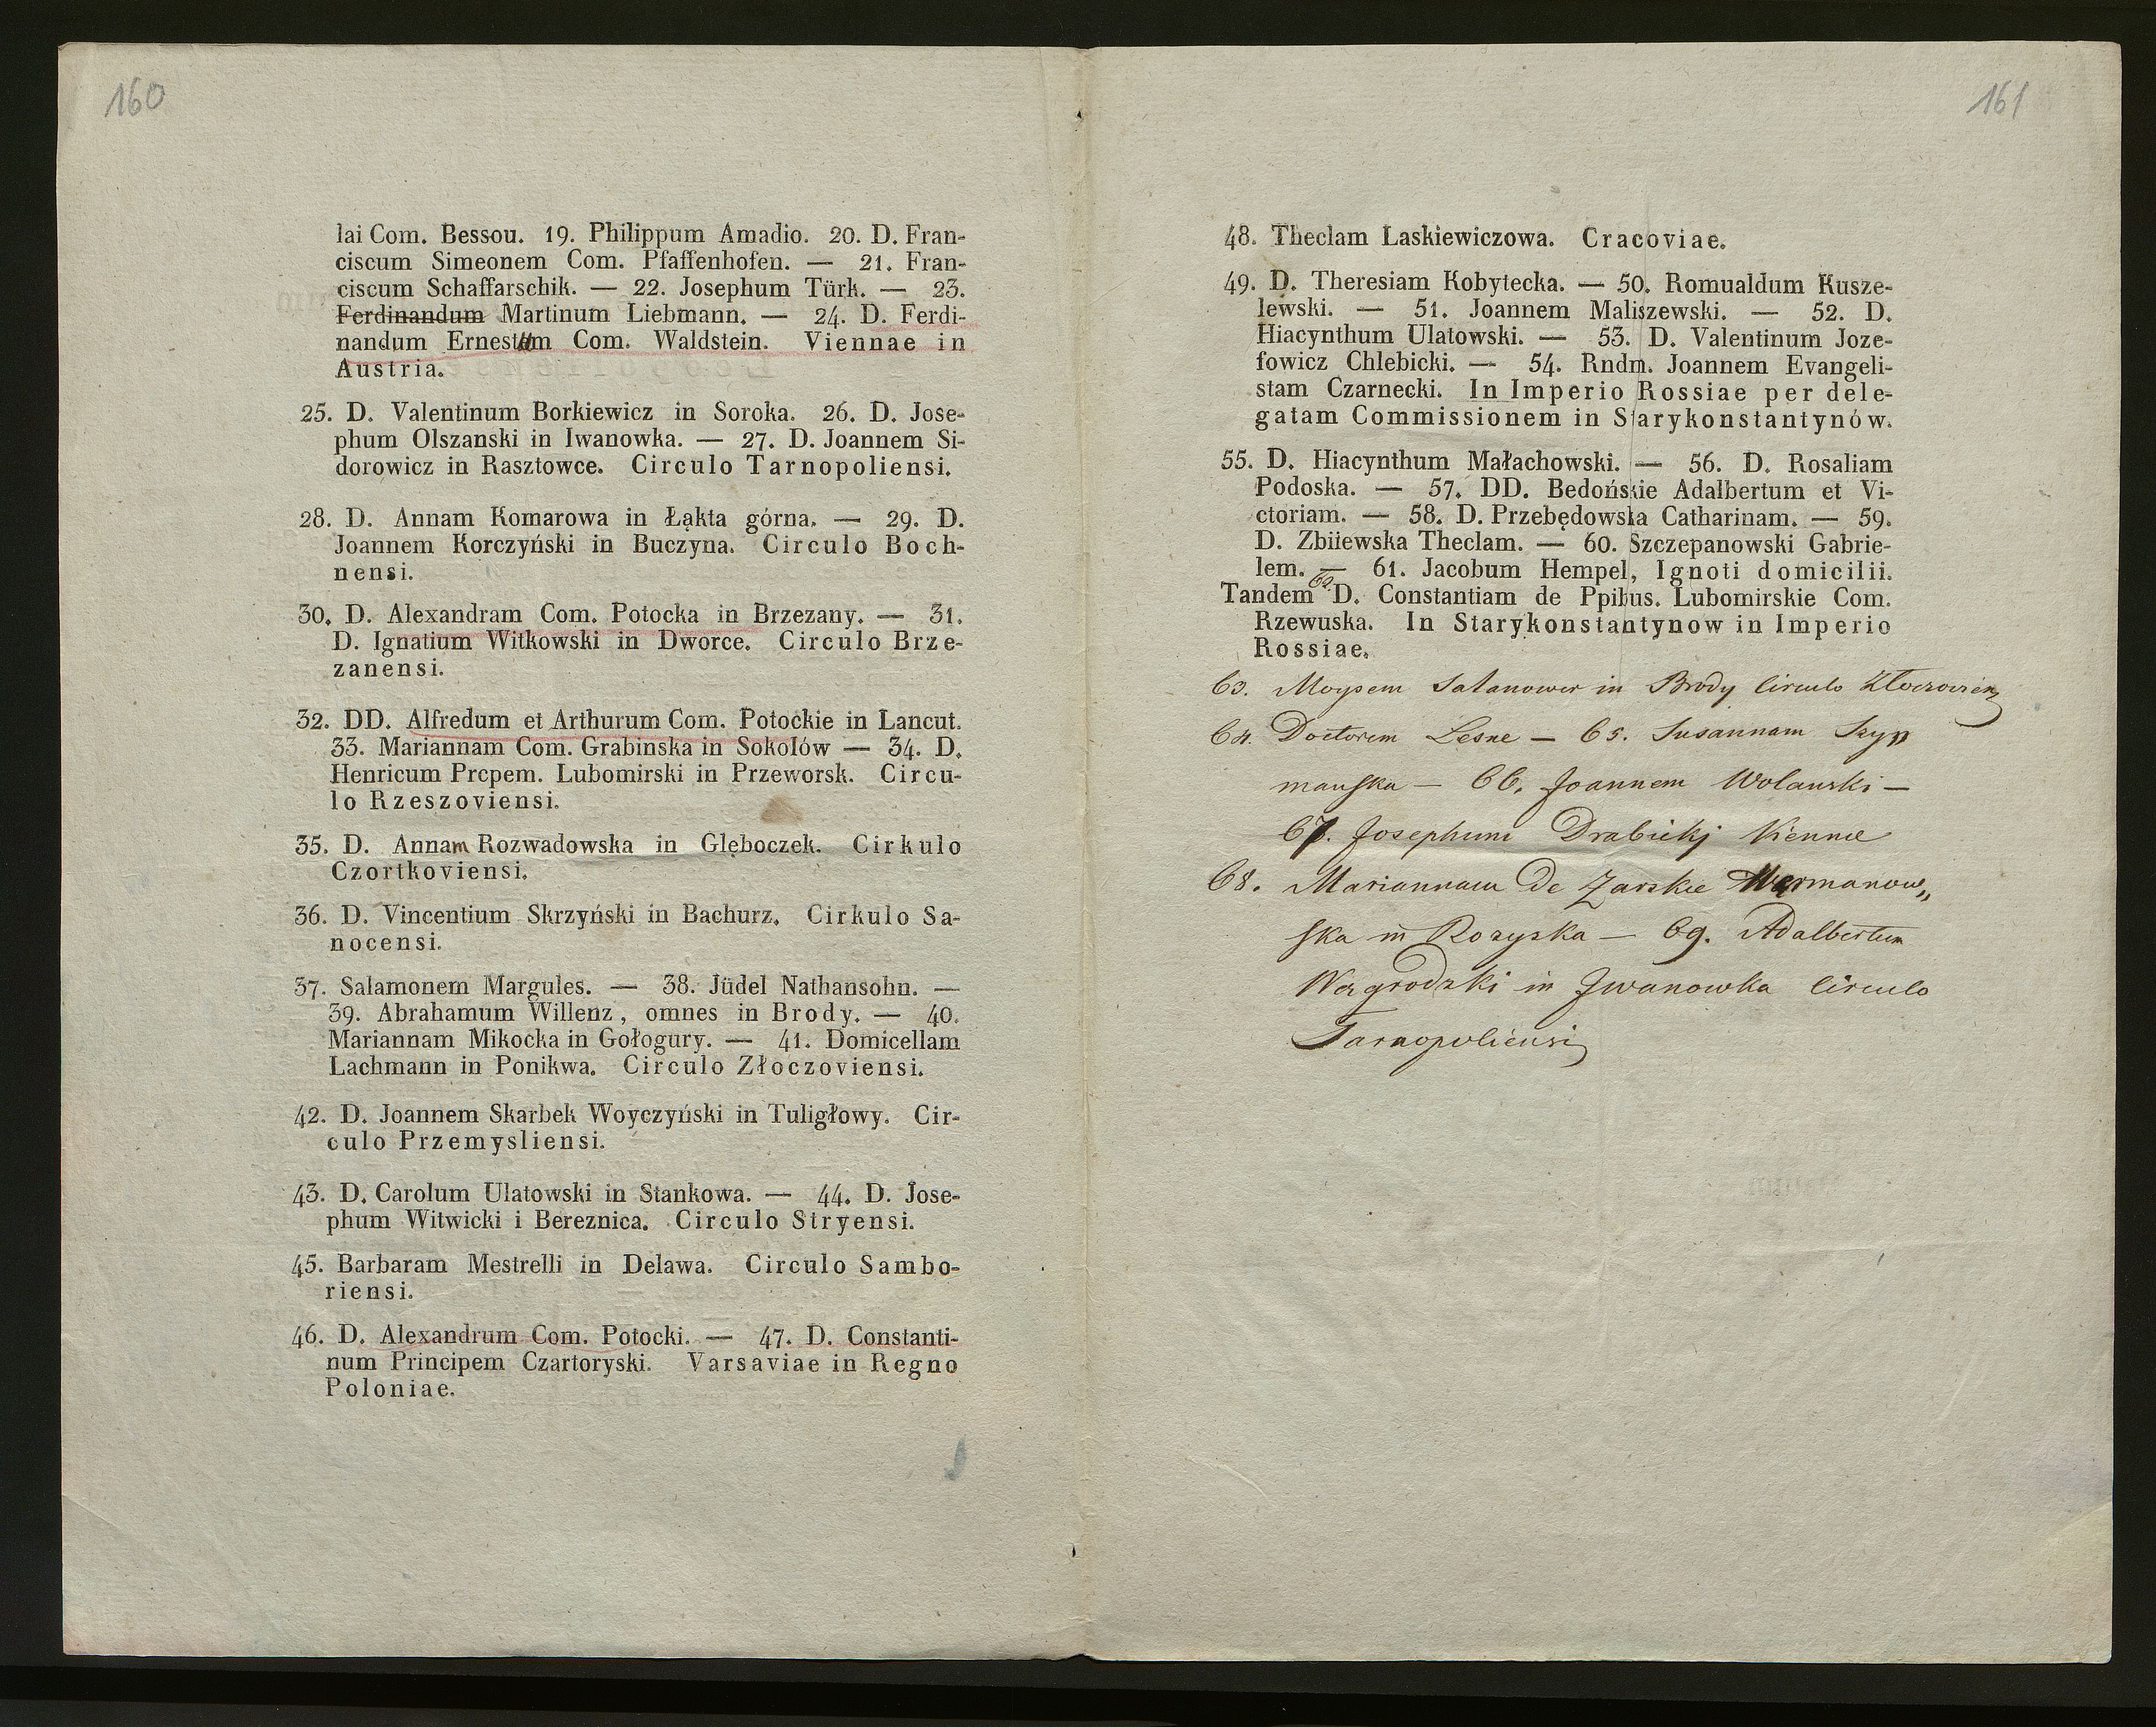 160
lai Com. Bessou. 19. Philippum Amadio. 20. D. Fran-
ciscum Simeonem Com. Pfaffenhofen. — 21. Fran-
ciscum Schaffarschik. — 22. Josephum Türk. — 23.
Ferdinandum Martinum Liebmann. — 24. D. Ferdi-
nandum Ernestum Com. Waldstein. Viennae in
Austria.
25. D. Valentinum Borkiewicz in Soroka. 26. D. Jose-
phum Olszanski in Iwanowka. — 27. D. Joannem Si-
dorowicz in Rasztowce. Circulo Tarnopoliensi.
28. D. Annam Komarowa in Łąkta górna. — 29. D.
Joannem Korczyński in Buczyna. Circulo Boch-
nensi.
30. D. Alexandram Com. Potocka in Brzezany. — 31.
D. Ignatium Witkowski in Dworce. Circulo Brze-
zanensi.
32. DD. Alfredum et Arthurum Com. Potockie in Lancut.
33. Mariannam Com. Grabinska in Sokolów — 34. D.
Henricum Prcpem. Lubomirski in Przeworsk. Circu-
lo Rzeszoviensi.
35. D. Annam Rozwadowska in Głęboczek. Cirkulo
Czortkoviensi.
36. D. Vincentium Skrzyński in Bachurz. Cirkulo Sa-
nocensi.
37. Salamonem Margules. — 38. Jüdel Nathansohn. —
39. Abrahamum Willenz, omnes in Brody. — 40.
Mariannam Mikocka in Gołogury. — 41. Domicellam
Lachmann in Ponikwa. Circulo Złoczoviensi.
42. D. Joannem Skarbek Woyczyński in Tuligłowy. Cir-
culo Przemysliensi.
43. D. Carolum Ulatowski in Stankowa. — 44. D. Jose-
phum Witwicki i Bereznica. Circulo Stryensi.
45. Barbaram Mestrelli in Delawa. Circulo Sambo-
riensi.
46. D. Alexandrum Com. Potocki. — 47. D. Constanti-
num Principem Czartoryski. Varsaviae in Regno
Poloniae.
161
48. Theclam Laskiewiczowa. Cracoviae.
49. D. Theresiam Kobytecka. — 50. Romualdum Kusze-
lewski. — 51. Joannem Maliszewski. — 52. D.
Hiacynthum Ulatowski. — 53. D. Valentinum Joze-
fowicz Chlebicki. — 54. Rndm. Joannem Evangeli-
stam Czarnecki. In Imperio Rossiae per dele-
gatam Commissionem in Starykonstantynów.
55. D. Hiacynthum Małachowski. — 56. D. Rosaliam
Podoska. — 57. DD. Bedońskie Adalbertum et Vi-
ctoriam. — 58. D. Przebędowska Catharinam. — 59.
D. Zbiiewska Theclam. — 60. Szczepanowski Gabrie-
lem. — 61. Jacobum Hempel, Ignoti domicilii.
Tandem 62. D. Constantiam de Ppibus. Lubomirskie Com.
Rzewuska. In Starykonstantynow in Imperio
Rossiae.
63. Moysem Satanower in Brody Circulo
64. Doctorem Lesne — 65. Susannam Szy„
manska — 66. Joannem Wolanski —
67. Josephum Drabicki Viennae
68. Mariannam de Zarskie Wermanow„
ska in Rozyska — 69. Adalbertum
Wagrodzki in Iwanowka Circulo
Tarnopoliensi